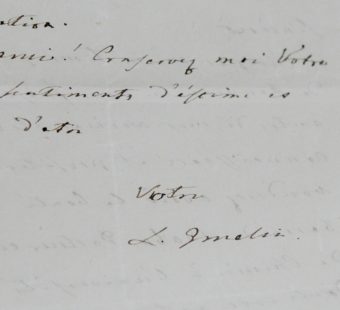 ation.
amie! Conservez moi Votre
sentiments d'estime et
d'etre
Votre
L. Gmelin.